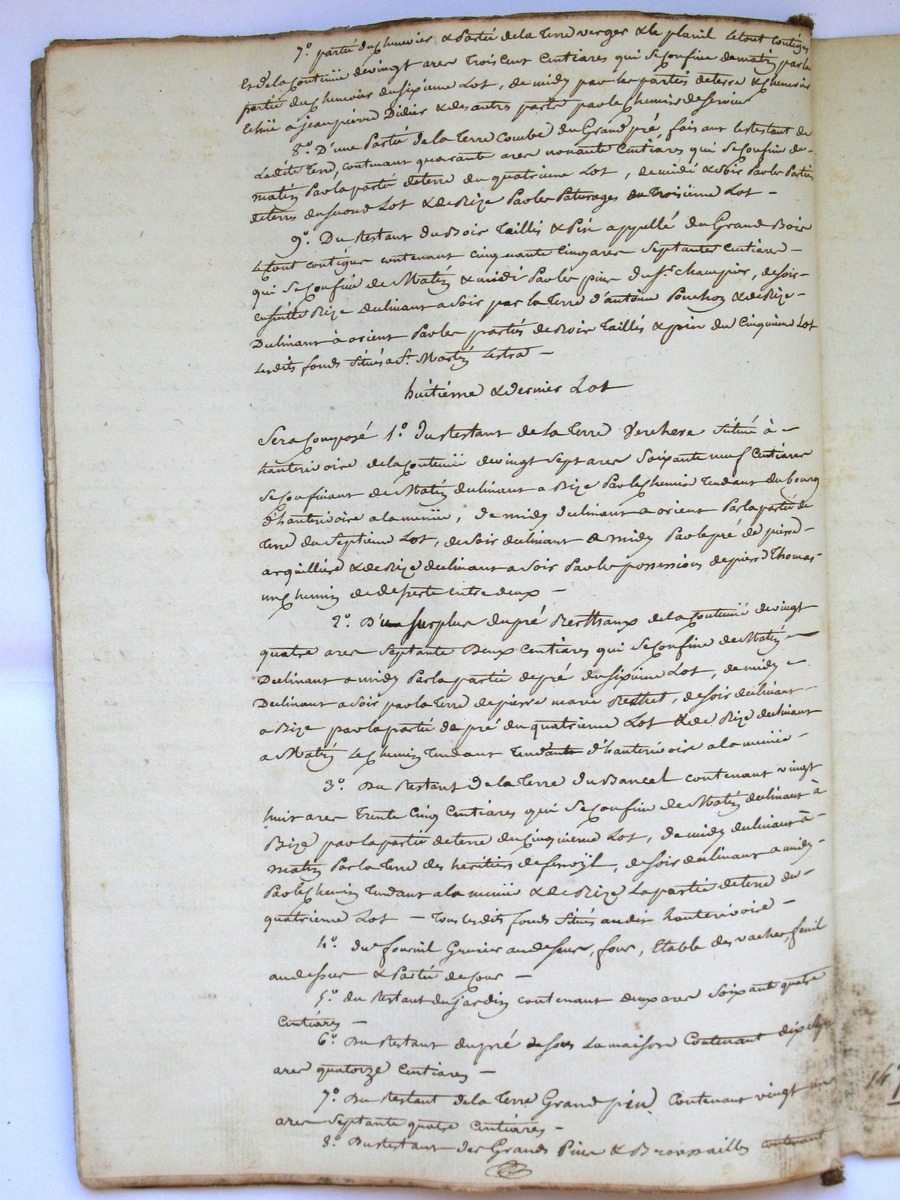 7.° partie du chenevier & Partie de la Terre verger & le planil le tout contigus
et de la contenüe de vingt ares Trois cent Centiares qui se confine de matin par la
partie du chenevier du sixieme Lot, de midy par les parties de terre & chenevier
échüe a jean pierre Didier & des autres parts par le chemin de service
8.° D'une Partie de la Terre Combe du Grand pré, fais ant le restant de
Ladite Terre, contenant quarante ares nonante Centiares qui se confine de -
matin Par la partie de terre du quatrieme Lot, de midi & soir Par les Parties
de terre du second Lot & de Bize Par les Paturages du Troisieme Lot -
9.° Du Restant du Bois Taillis & Pin appellé du Grand Bois
Le tout contigus contenant cinquante cinq ares septante Centiares -
qui se confine de Matin & midi Par les pins du Sr champier, de soir -
ensuitte Bize declinant a soir par la Terre d'antoine Ponchon & de Bize -
Declinant à orient Par les parties de Bois Taillis & pin du Cinquieme Lot
Lesdits fonds situés a St. Martin Lestra -
huitième & dernier Lot
Sera Composé 1.° du Restant de la Terre Verchere Située à -
hauterivoire de la contenüe de vingt sept ares Soixante neuf Centiares
se confinant de Matin declinant a Bize Par le chemin Tendant du bourg
d'hauterivoire a la menüe, de midy declinant a orient Par la partie de
Terre du Septieme Lot, de soir declinant a midy Par le pré de pierre -
arquilliere & de Bize declinant a soir Par les possessions de pierre Thomas -
un chemin de desserte entre deux -
2.° D'un surplus du pré Resthaux de la contenüe de vingt
quatre ares Septante Deux Centiares qui se confine de Matin -
Declinant a midy Par la partie de pré du sixieme Lot, de midy -
Declinant a soir par la Terre de pierre marie Resthet, de soir declinant -
a Bize par la partie de pré du quatrieme Lot & de Bize declinant
a Matin Le chemin Tendant Tendante d'hauterivoire a la menüe -
3.° Du Restant de la Terre du Bancel contenant vingt
huit ares Trente Cinq Centiares qui se confine de Matin declinant à
Bize par la partie de terre du Cinquieme Lot, de midy declinant à -
matin Par la Terre des heritiers de, de soir declinant a midy -
Par le chemin Tendant a la menüe & de Bize La partie de terre du -
quatrieme Lot - Tous lesdits fonds Situés audit hauterivoire -
4.° du fournil Grenier au dessus, four, Etable des vaches, fenil
au dessus & Partie de cour -
5.° du Restant du jardin contenant deux ares Soixante quatre
Centiares -
6.° Du Restant du pré de sous La maison Contenant dix sept
ares quatorze Centiares -
7.° Du Restant de la Terre Grand pin Contenant vingt un
ares Septante quatre Centiares -
8.° Du Restant des Grands Pins & Broussailles contenant